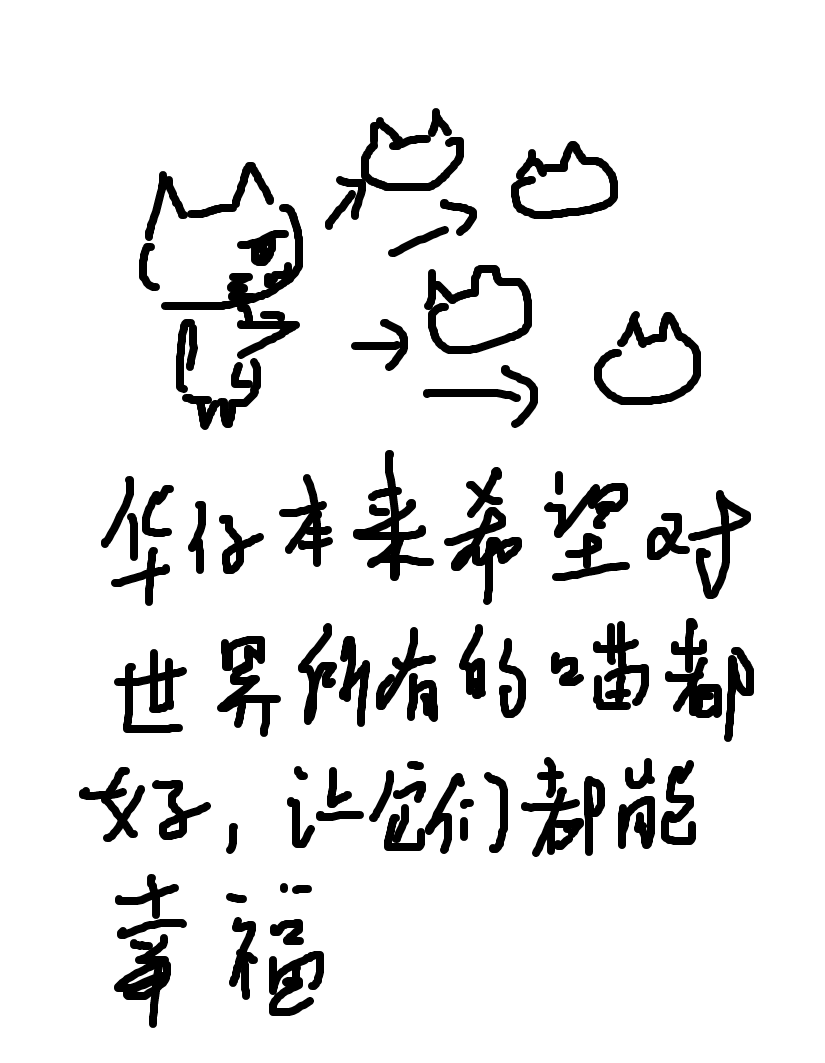 华仔本来希望对
世界所有的喵都
好，让它们都能
幸福